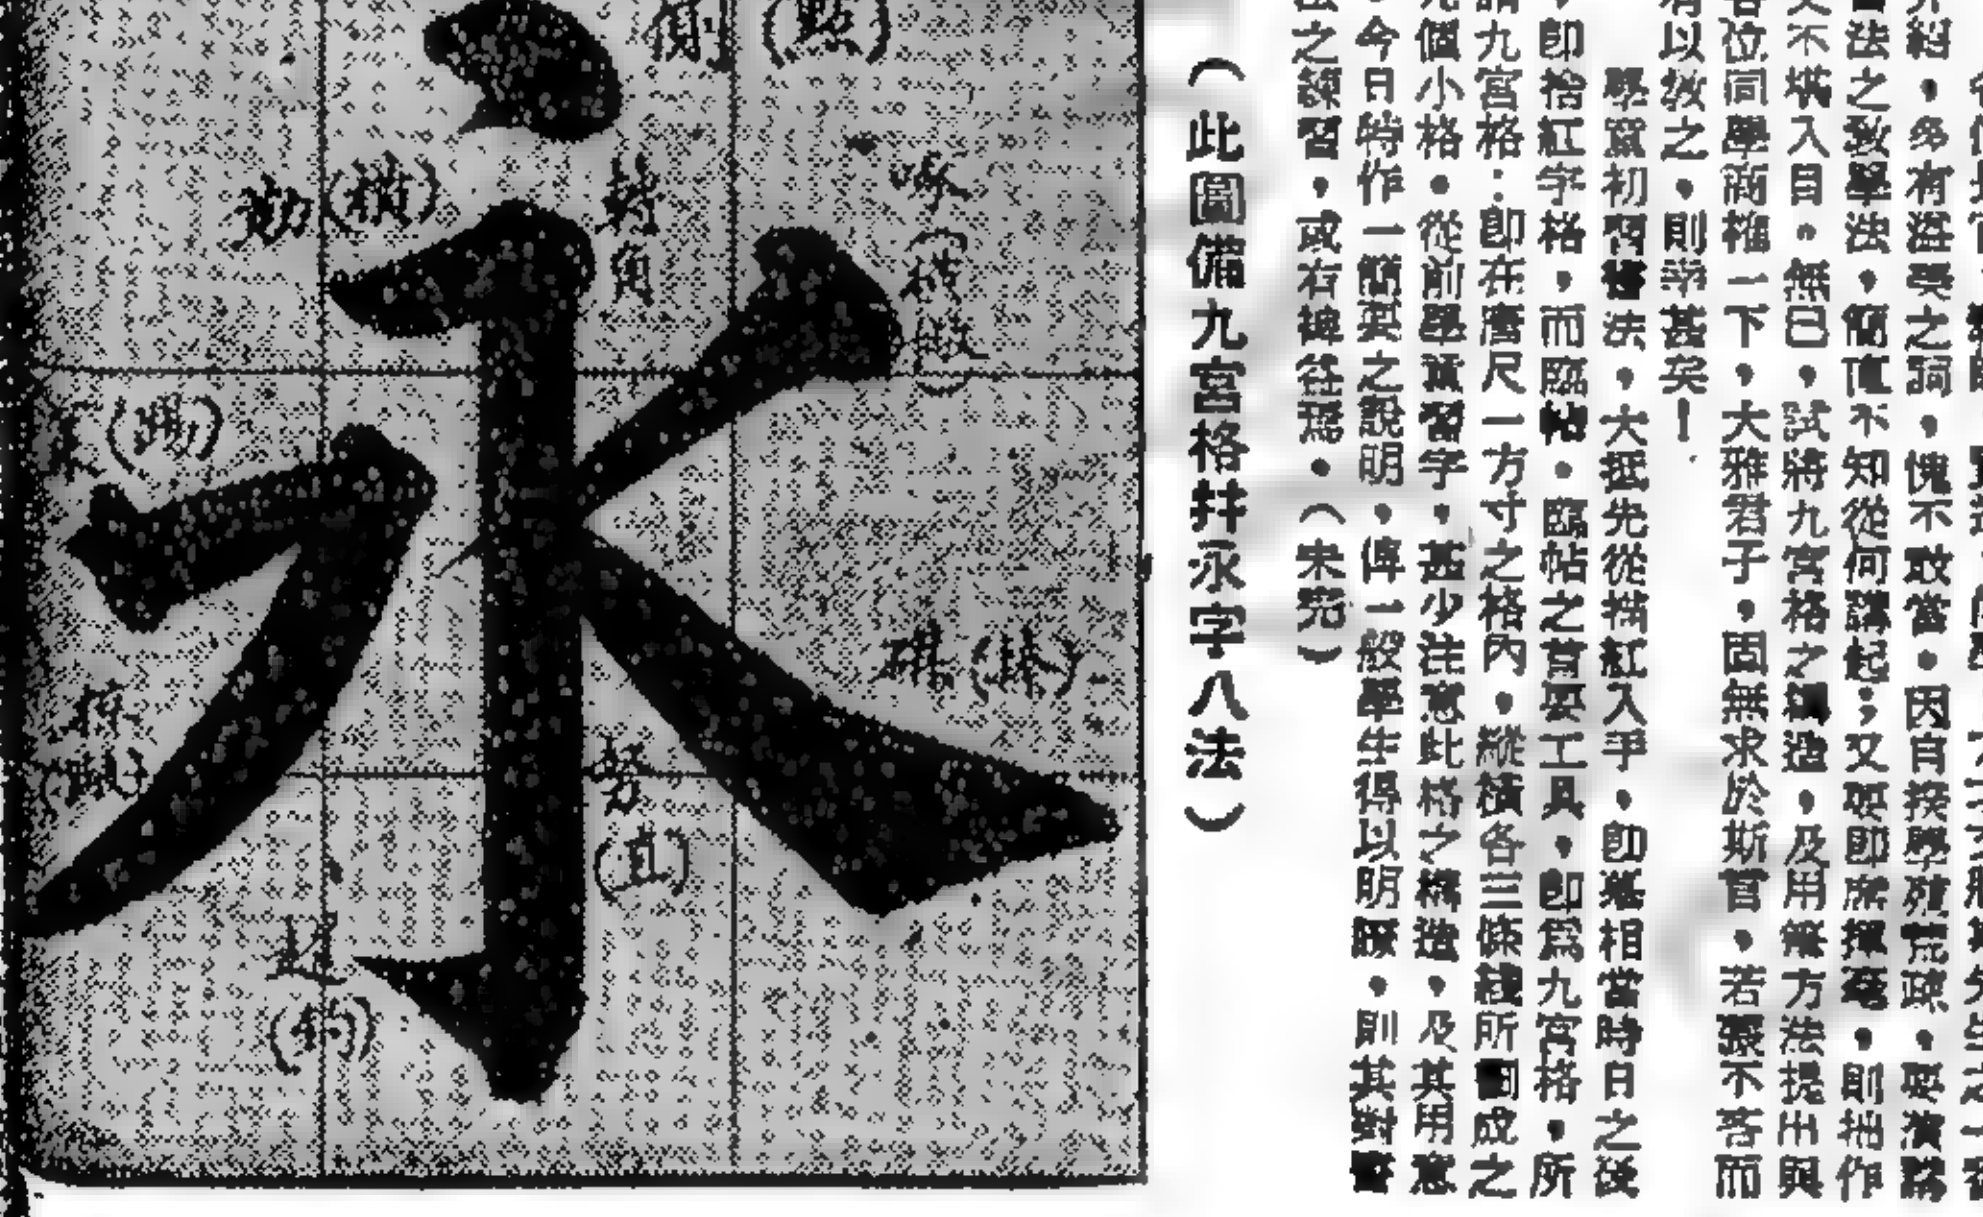 介紹，多有溢美之詞，愧不敢當。因自揆學殖荒疎，要演講
書法之教學法，簡直不知從何講起；又要卽席揮毫，則拙作
又不堪入目。無已，試將九宮格之構造，及用筆方法提出與
各位同學商榷一下，大雅君子，固無求於斯言，若孺不吝而
有以敎之，則幸甚矣！
學寫初習書法，大抵先從描紅入手，卽幾相當時日之後
，卽捨紅字格，而臨帖。臨帖之首要工具，卽爲九宮格，所
謂九宮格：卽在唐尺一方寸之格內，縱橫各三條綫所圍成之
九個小格。從前學校習字，甚少注意此格之構造，及其用意
。今日特作一簡要之說明，俾一般學生得以明瞭，則其對書
法之練習，或有裨益焉。（未完）
（此圖備九宮格幷永字八法）
側（點）
勒（橫）
轉角
啄（橫撇）
策（踢）
掠（撇）
磔（捺）
努（直）
趯（鈎）
永